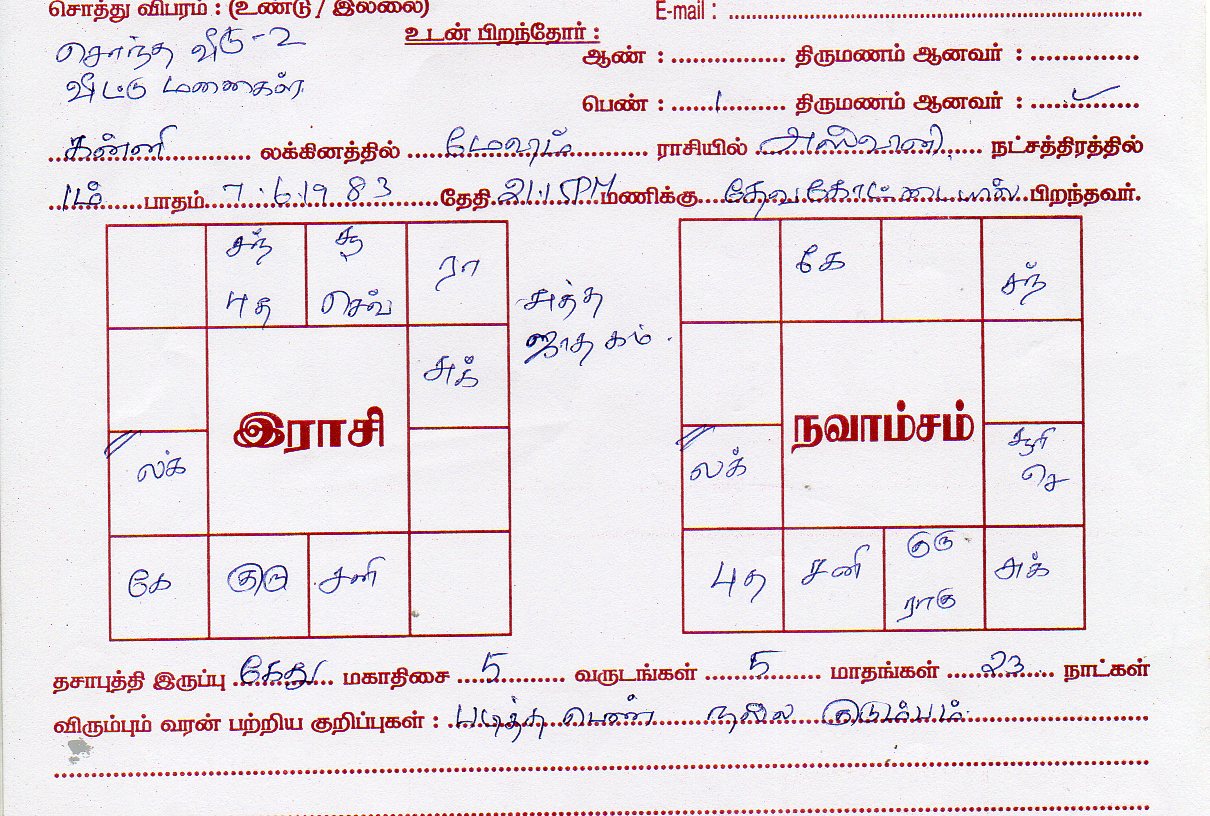 சொத்து விபரம் : (உண்டு / இல்லை)
E-mail :
சொந்த வீடு - 2
வீட்டு மனைகள்
உடன் பிறந்தோர் :
ஆண் : திருமணம் ஆனவர் :
பெண் : 1 திருமணம் ஆனவர் : ✓
கன்னி லக்கினத்தில் மேஷம் ராசியில் அஸ்வினி நட்சத்திரத்தில்
பாதம் 7.6.1983 தேதி மணிக்கு தேவகோட்டையில் பிறந்தவர்.
சந் சூ ரா
புத செவ்
சுத்த
ஜாதகம்
சுக்
இராசி
லக்
கே குரு சனி
கே சந்
நவாம்சம்
லக் சூரி
செ
புத சனி குரு சுக்
ராகு
தசாபுத்தி இருப்பு கேது மகாதிசை 5 வருடங்கள் 5 மாதங்கள் 23 நாட்கள்
விரும்பும் வரன் பற்றிய குறிப்புகள் : படித்த பெண் நல்ல குடும்பம்